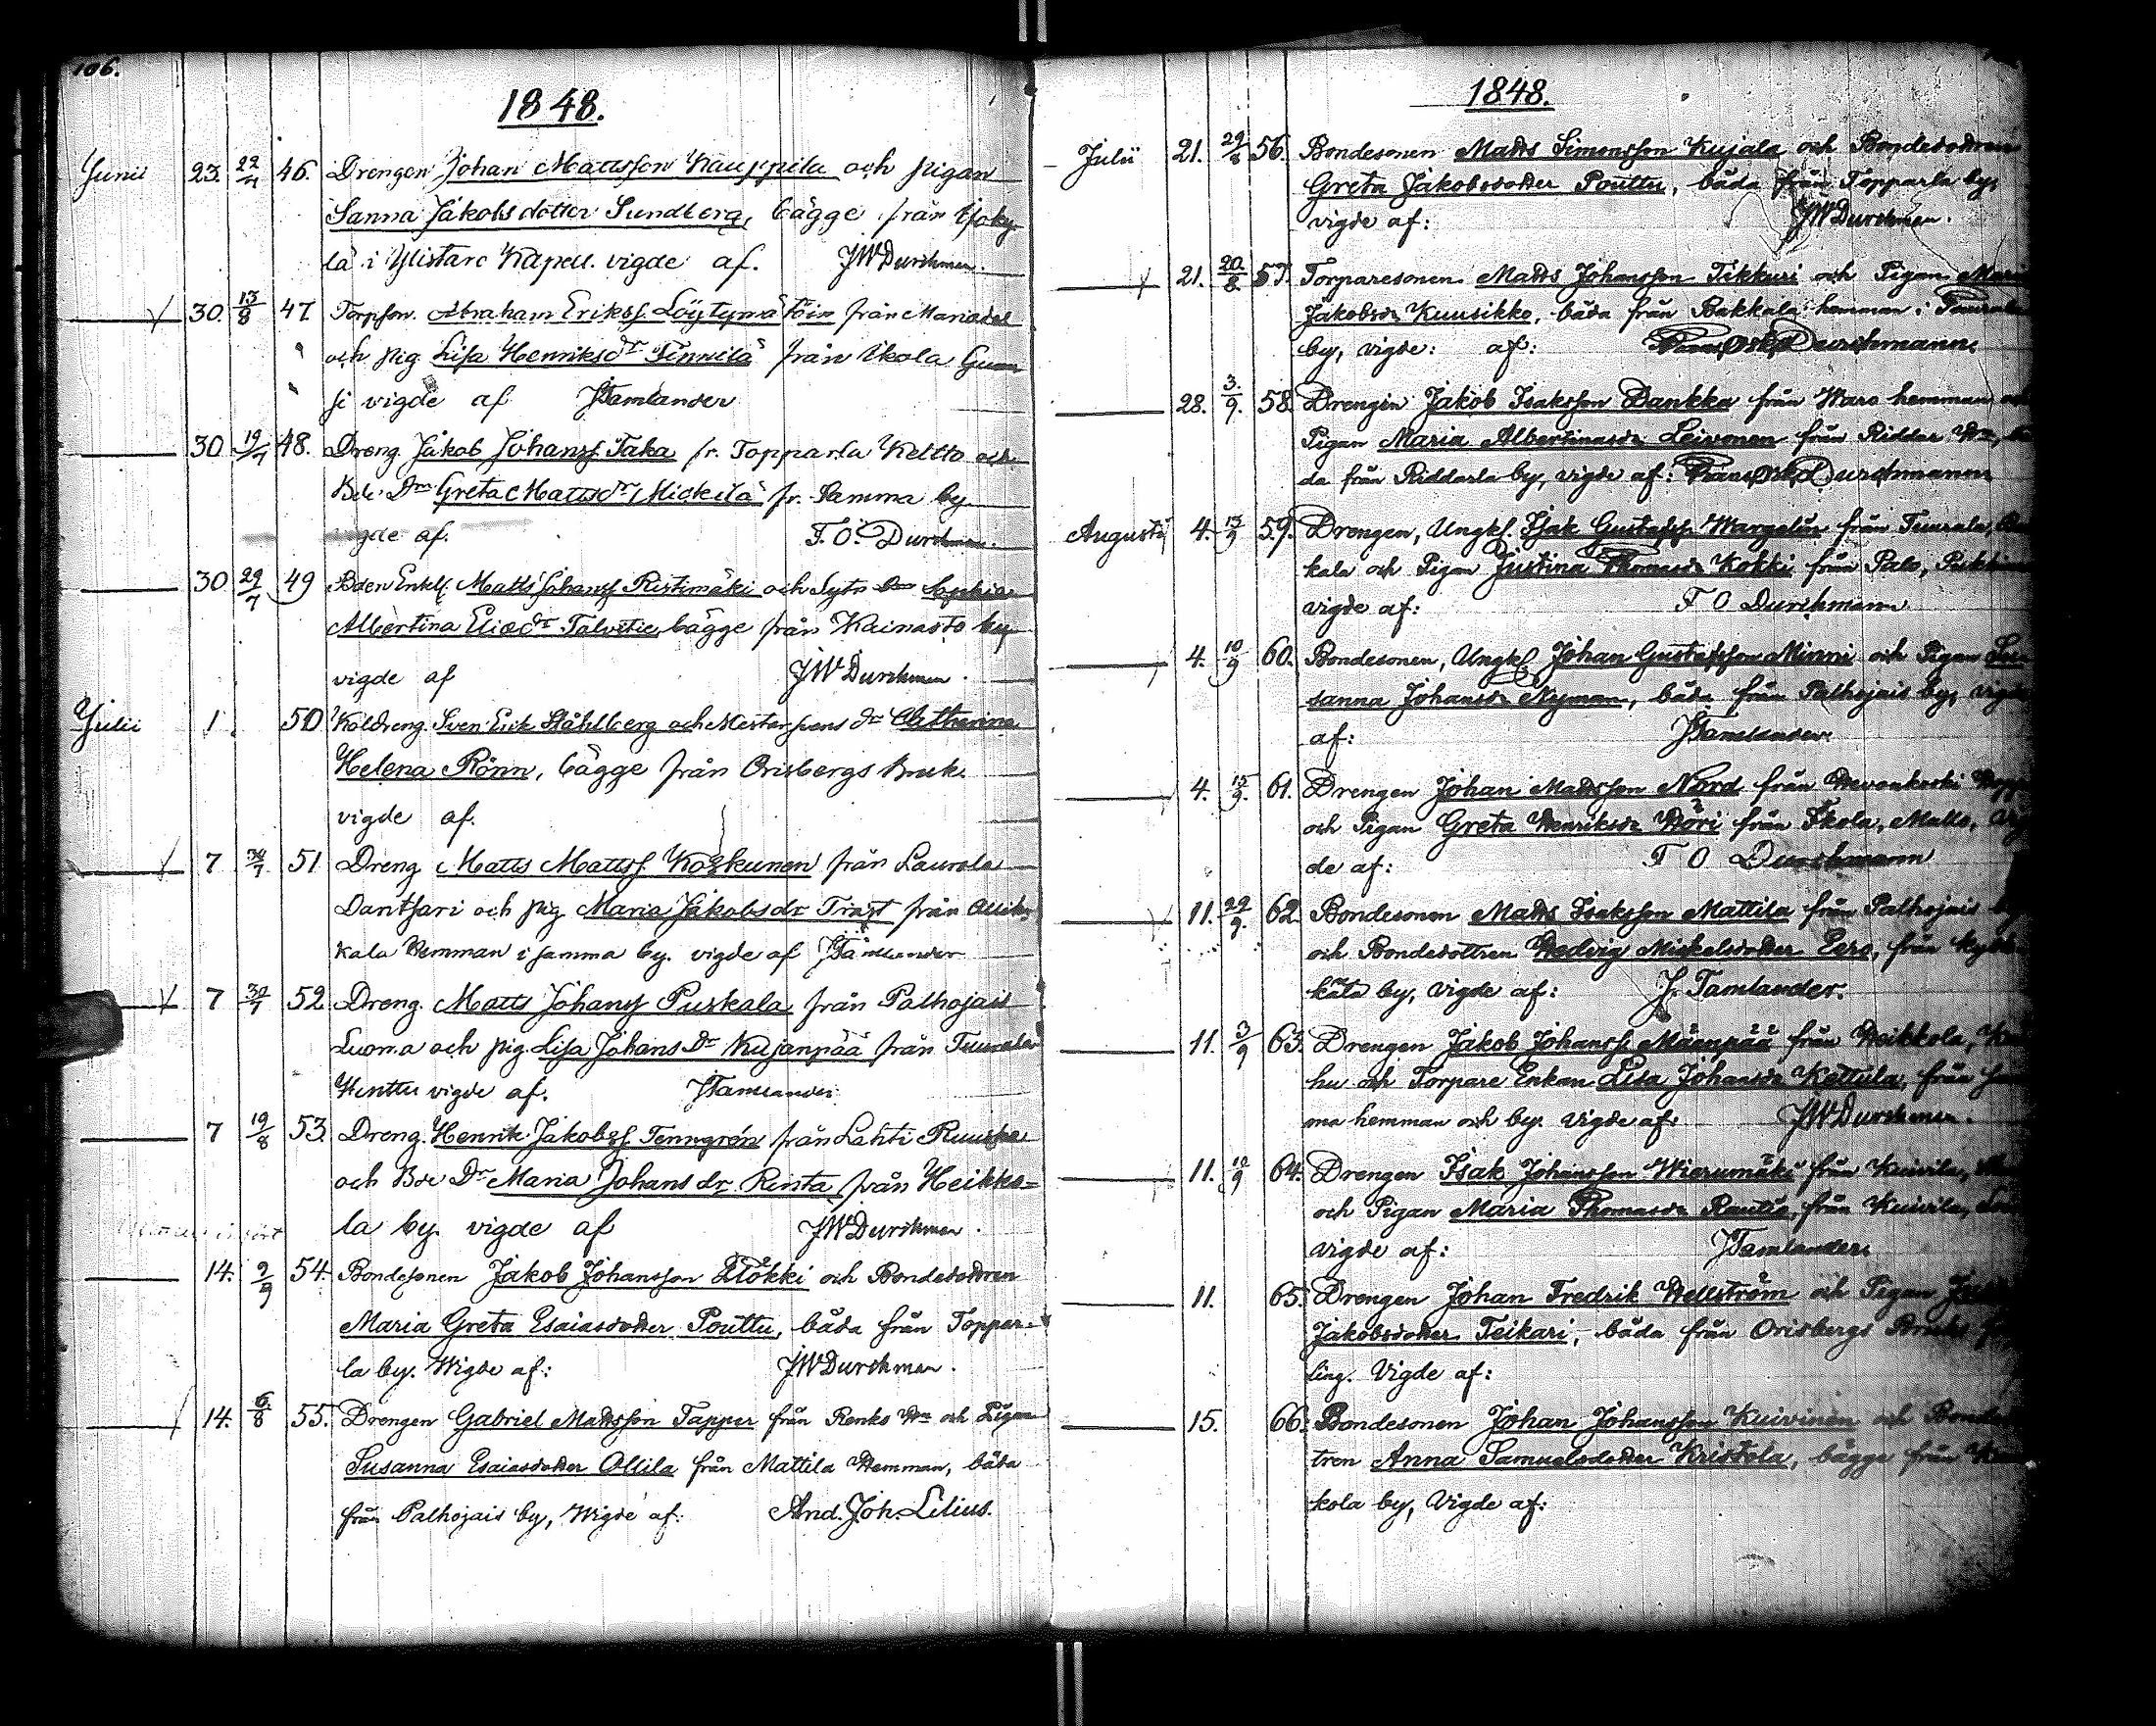 106.
1848.
Junii 23. 22/7 46. Drengen Johan Mattsson Kauppila och pigan
Sanna Jakobsdotter Sundberg, bägge från
la i Ylistaro Kapell. vigde af. JWDurchman.
30. 13/8 47 Torpson. Abraham Erikss. från
och pig Lisa Henriksdr från Ikola
si vigde af JTamlander
30 19/7 48. Dreng. Jakob Johanss. Taka fr. Topparla Keltto och
Bde Dr Greta Mattsdr Mickilä fr. Samma by
vigde af. F. O. Durchman.
30 29/7 49 Bden Enkl. Matts Johanss Ristimäki och Sytn Sophia
Albertina Eliædr Talvitie, bägge från Kainasto by
vigde af JWDurchman.
Julii 1. 50 Koldreng. Sven Erik Ståhlberg och dr Catharina
Helena Rönn, bägge från Orisbergs Bruk.
vigde af.
7 30/7 51 Dreng Matts Mattss. Koskunen från Laurola
Dantsari och pig Maria Jakobsdr från
kala Hemman i samma by. vigde af JTamlander
7 30/7 52 Dreng. Matts Johanss Puskala från Palhojais
Luoma och pig. Lisa Johans Dr Kujanpää från Tuurala
Henttu vigde af. JTamlander
7 19/8 53. Dreng. Henrik Jakobss. Tenngrén från Lahti
och Bde Dr Maria Johans dr. Rinta från Heikko=
la by. vigde af JWDurchman.
14. 9/9 54. Bondesonen Jakob Johansson Klökki och Bondedottren
Maria Greta Esaiasdotter Pouttu, båda från Toppar-
la by. Wigde af: JWDurchman.
14. 6/8 55. Drengen Gabriel Mattsson Tapper från Renko Hn och Pigan
Susanna Esaiasdotter Ollila från Mattila Hemman, båda
från Palhojais by, Wigde af: And. Joh. Lilius.
1848.
Julii 21. 29/8 56. Bondesonen Matts Simonsson Kujala och Bondedottren
Greta Jakobsdotter Pouttu, båda från Topparla by,
vigde af: JWDurchman.
21. 20/8 57. Torparesonen Matts Johansson Tikkuri och Pigan Maria
Jakobsdr Kuusikko, båda från Bakkala hemman i
by, vigde: af: Frans Osk. Durchmann.
28. 3/9. 58. Drengen Jakob Isaksson Dankka från Waro hemman och
Pigan Maria Albertinasdr Leivonen från Riddar Hn,
da från Riddarla by, vigde af: Frans Osk. Durchmann
Augusti 4. 13/9 59. Drengen, Ungkl. Isak Gustafss. från Tuurala,
kala och Pigan Justina Thomasdr Kokki från Palo,
vigde af: F O Durchmann
4. 10/9 60. Bondesonen, Ungkl. Johan Gustafsson Minni och Pigan Su-
sanna Johansdr Nyman, båda från Palhojais by, vigde
af: JTamlander.
4. 15/9. 61. Drengen Johan Mattsson Nord från
och Pigan Greta Henriksdr Wöri från Ikola, Matto,
de af: F O Durchmann
11. 29/9. 62. Bondesonen Matts Isaksson Mattila från Palhojais by
och Bondedottren Hedvig Mickelsdotter Eero, från
käla by, vigde af: J. Tamlander.
11. 3/9 63. Drengen Jakob Johanss. Mäenpää från Heikkola,
hu och Torpare Enkan Lisa Johansdr Kettula, från
ma hemman och by. Vigde af: JWDurchman.
11. 10/9 64. Drengen Isak Johansson Wierumäki från Kuivila,
och Pigan Maria Thomasdr Rautio, från Kuivila,
vigde af: JTamlander.
11. 65. Drengen Johan Fredrik Wellström och Pigan
Jakobsdotter Teikari, båda från Orisbergs Bruks
ling. Vigde af:
15. 66. Bondesonen Johan Johansson Kuivinen och
tren Anna Samuelsdotter Kristola, bägge från
kola by, Vigde af: